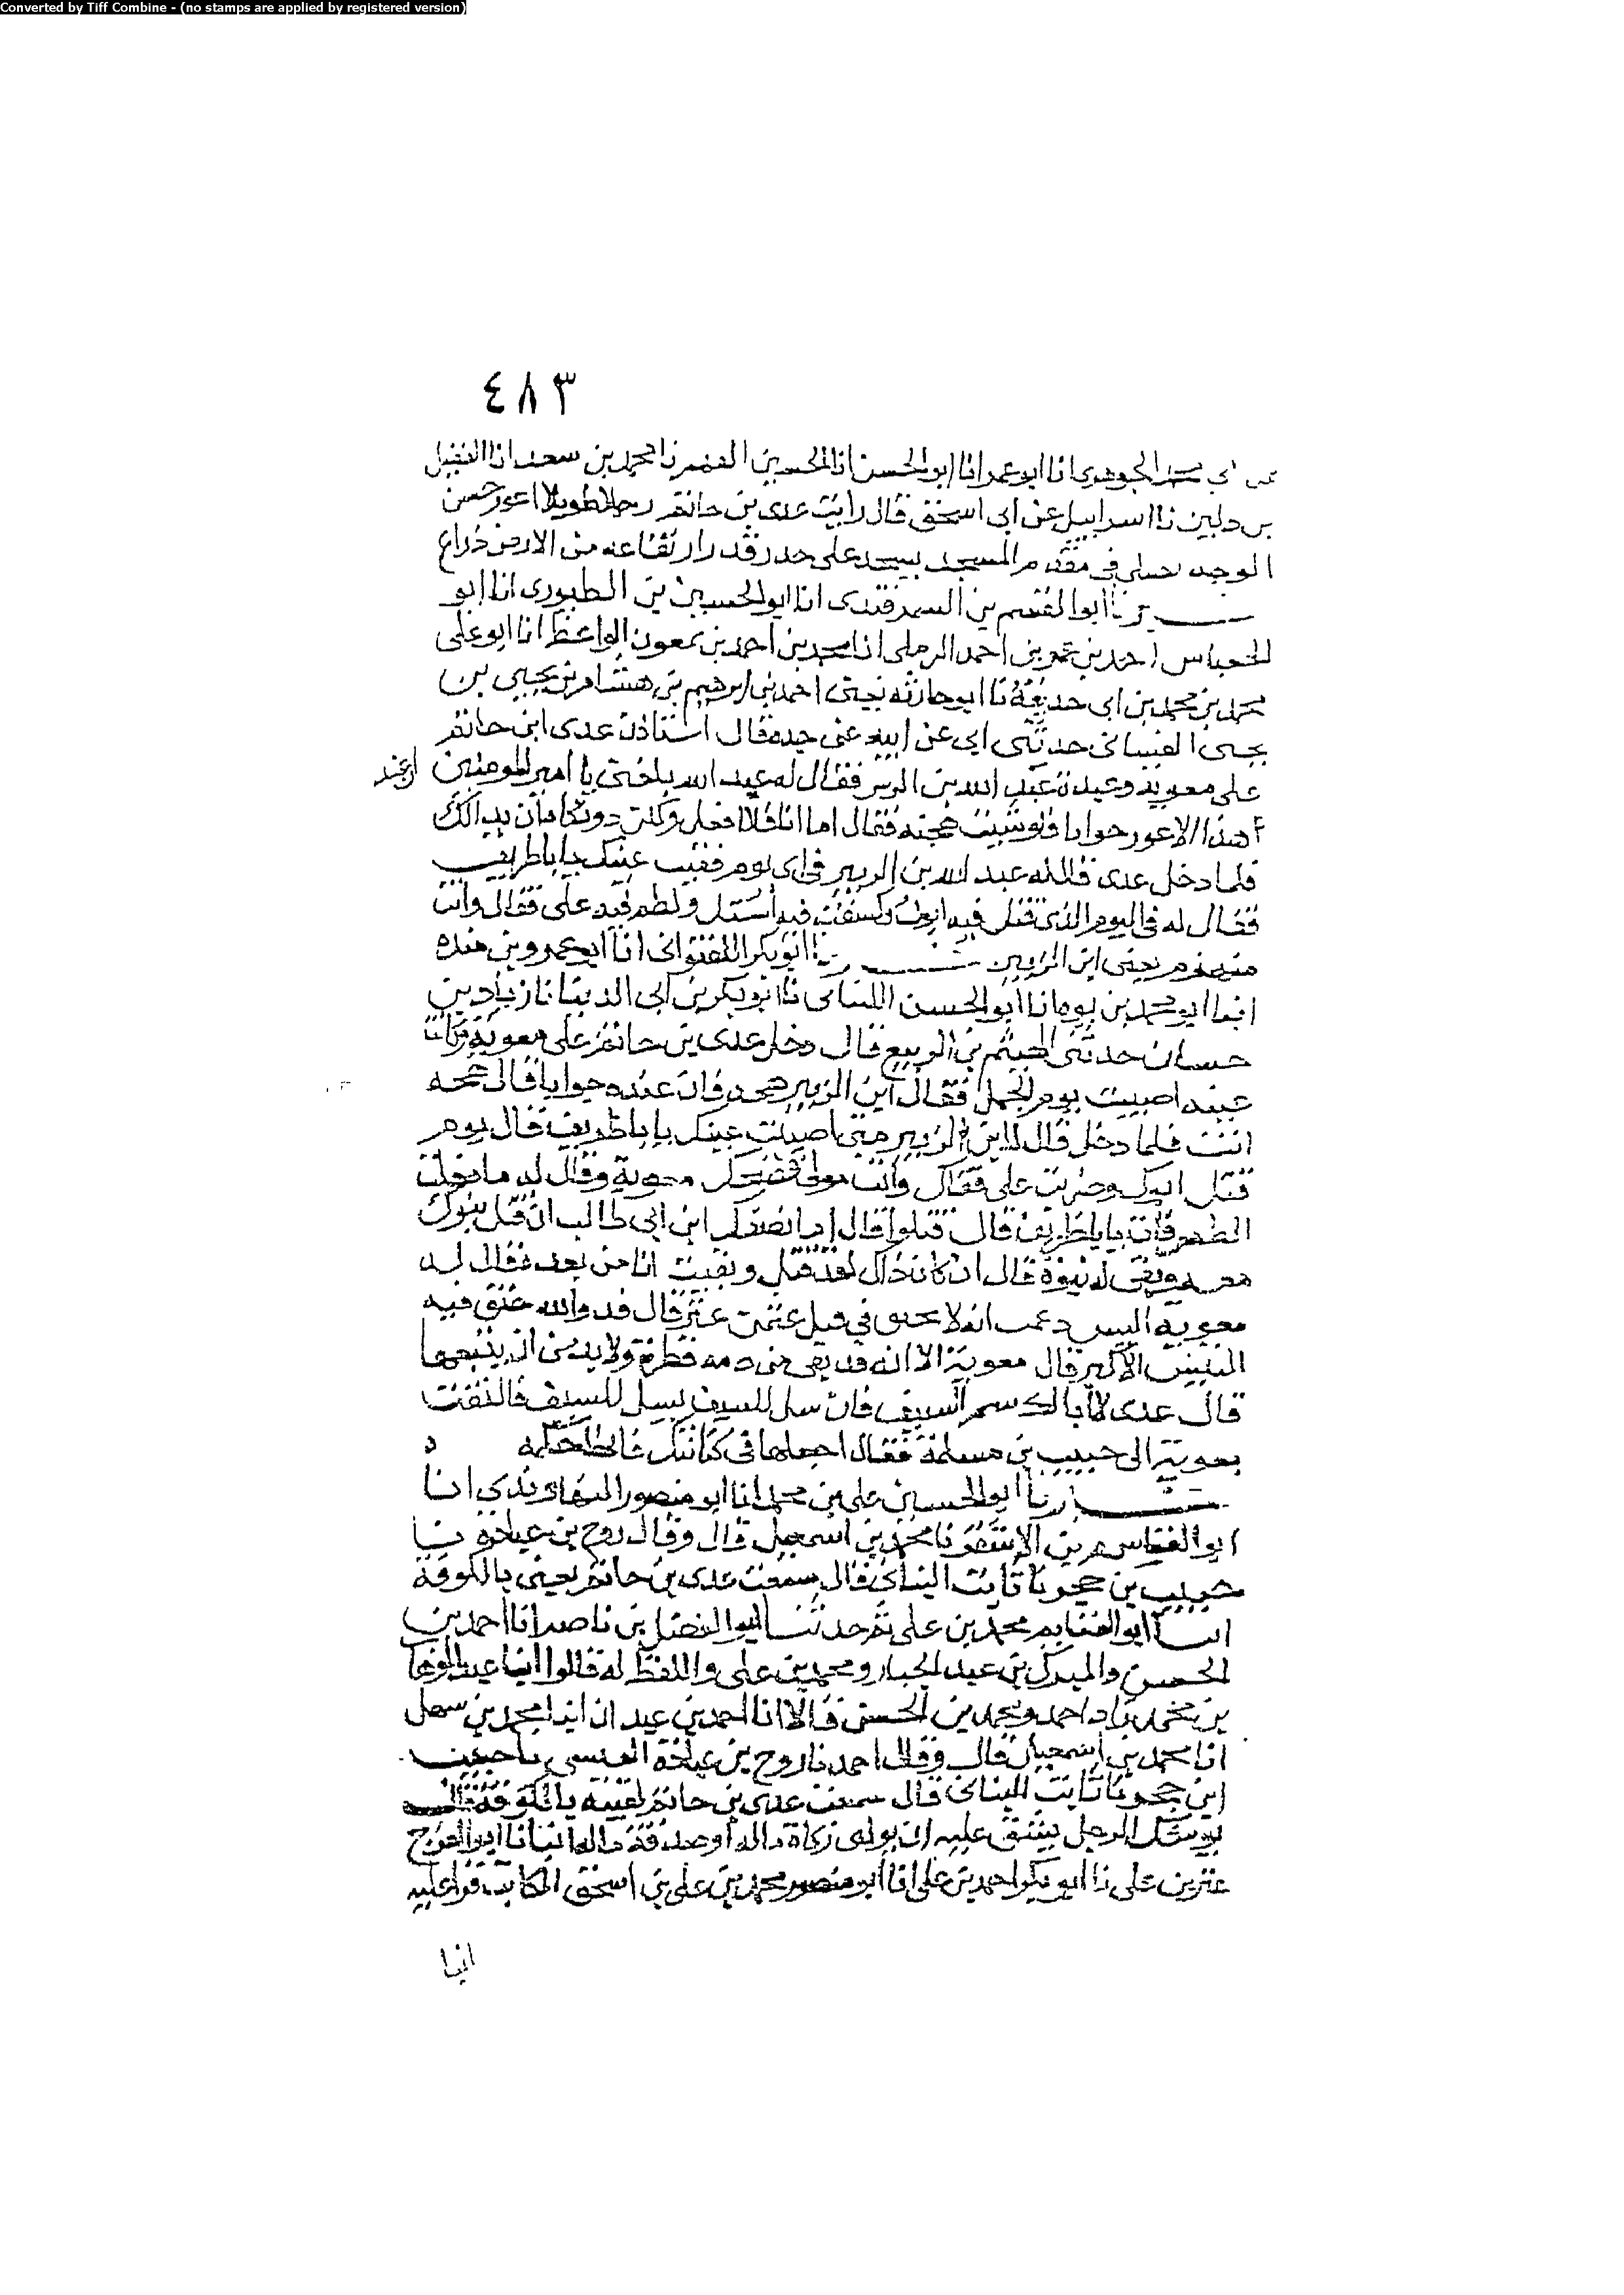 Converted by Tiff Combine - (no stamps are applied by registered version)
٤٨٣
الجوهرى انا ابو عمر انا ابو الحسن انا الحسين نا محمد بن سعد انا الفضل
بن دكين نا اسراييل عن ابى اسحق قال رايت عدى بن حاتم رجلا طويلا اعور حسن
الوجه فى مقدم المسجد يسجد على جدر قدر ارتفاعه من الارض ذراع
نا ابو القسم بن السمرقندى انا ابو الحسين بن الطيورى انا ابو
احمد بن عمر بن احمد الرملى انا محمد بن احمد بن سمعون الواعظ انا ابو على
محمد بن محمد بن ابى حذيفة نا ابو حارثه يعنى احمد بن ابرهيم بن هشام بن يحيى بن
يحيى الغسانى حدثنى ابى عن ابيه عن جده قال استاذن عدى ابن حاتم
على معويه وعنده عبد الله بن الزبير فقال له عبد الله بلغنى يا امير المومنين ان عند
هذا الاعور جوابا فلو شيت هجته فقال اما انا فلا افعل ولكن دونكه
فلما دخل عدى قال له عبد الله بن الزبير فى اى يوم فقيت عينك يا با طريف
فقال له فى اليوم الذى قتل فيه ابوك وكشفت فيه استك ولطم فيه على قفاك وانت
منهزم يعنى ابن الزبير نا ابو بكر اللفتوانى انا ابو عمرو بن منده
انبا ابو محمد بن يوه انا ابو الحسن اللنبانى نا ابو بكر بن ابى الدنيا نا زياد بن
حسان حدثنى الهيثم بن الربيع قال دخل عدى بن حاتم على معوية وكانت
عينه اصيبت يوم الجمل فقال ابن الزبير هجه فان عنده جوابا قال هجه
انت فلما دخل قال له ابن الزبير متى اصيبت عينك يا با طريف قال يوم
قتل ابوك وضربت على قفاك وانت مولى فضحك معوية وقال له ما فعلت
الطرفات يا با طريف قال قتلوا قال ما انصفك ابن ابى طالب ان قتل بنوك
معه وبقى له بنوه قال ان كان ذاك لقد قتل وبقيت انا من بعده فقال له
معويه اليس زعمت انه لا يحبق فى قتل عثمن عنز قال قد والله حبق فيه
التيس الاكبر قال معوية الا انه قد بقى من دمه قطرة ولا بد من ان يتبعها
قال عدى لا ابا لك شم السيف فان سل السيف يسل السيف فالتفت
معوية الى حبيب بن مسلمة فقال اجعلها فى كتابك فانها حكمه
نا ابو الحسين على بن محمد انا ابو منصور النهاوندى انا
ابو القسم بن الاشقر نا محمد بن اسمعيل قال وقال روح بن عباده نا
حبيب بن حجر نا ثابت البنانى قال سمعت عدى بن حاتم يعنى بالكوفة
انبا ابو الغنايم محمد بن على ثم حدثنا ابو الفضل بن ناصر انا احمد بن
الحسن والمبرك بن عبد الجبار ومحمد بن على واللفظ له قالوا انبا عبد الوهاب
بن محمد زاد احمد ومحمد بن الحسن قالا انا احمد بن عبدان انبا محمد بن سهل
انا محمد بن اسمعيل قال وقال احمد نا روح بن عبادة القيسى نا حبيب
ابن حجر نا ثابت البنانى قال سمعت عدى بن حاتم لقيته بالكوفة قال
يوشك الرجل يشق عليه ان يودى زكاة ماله او صدقة ماله انبانا ابو الفرج
بن على نا ابو بكر احمد بن على انا ابو منصور محمد بن على بن اسحق الكاتب قرا عليه
انبا